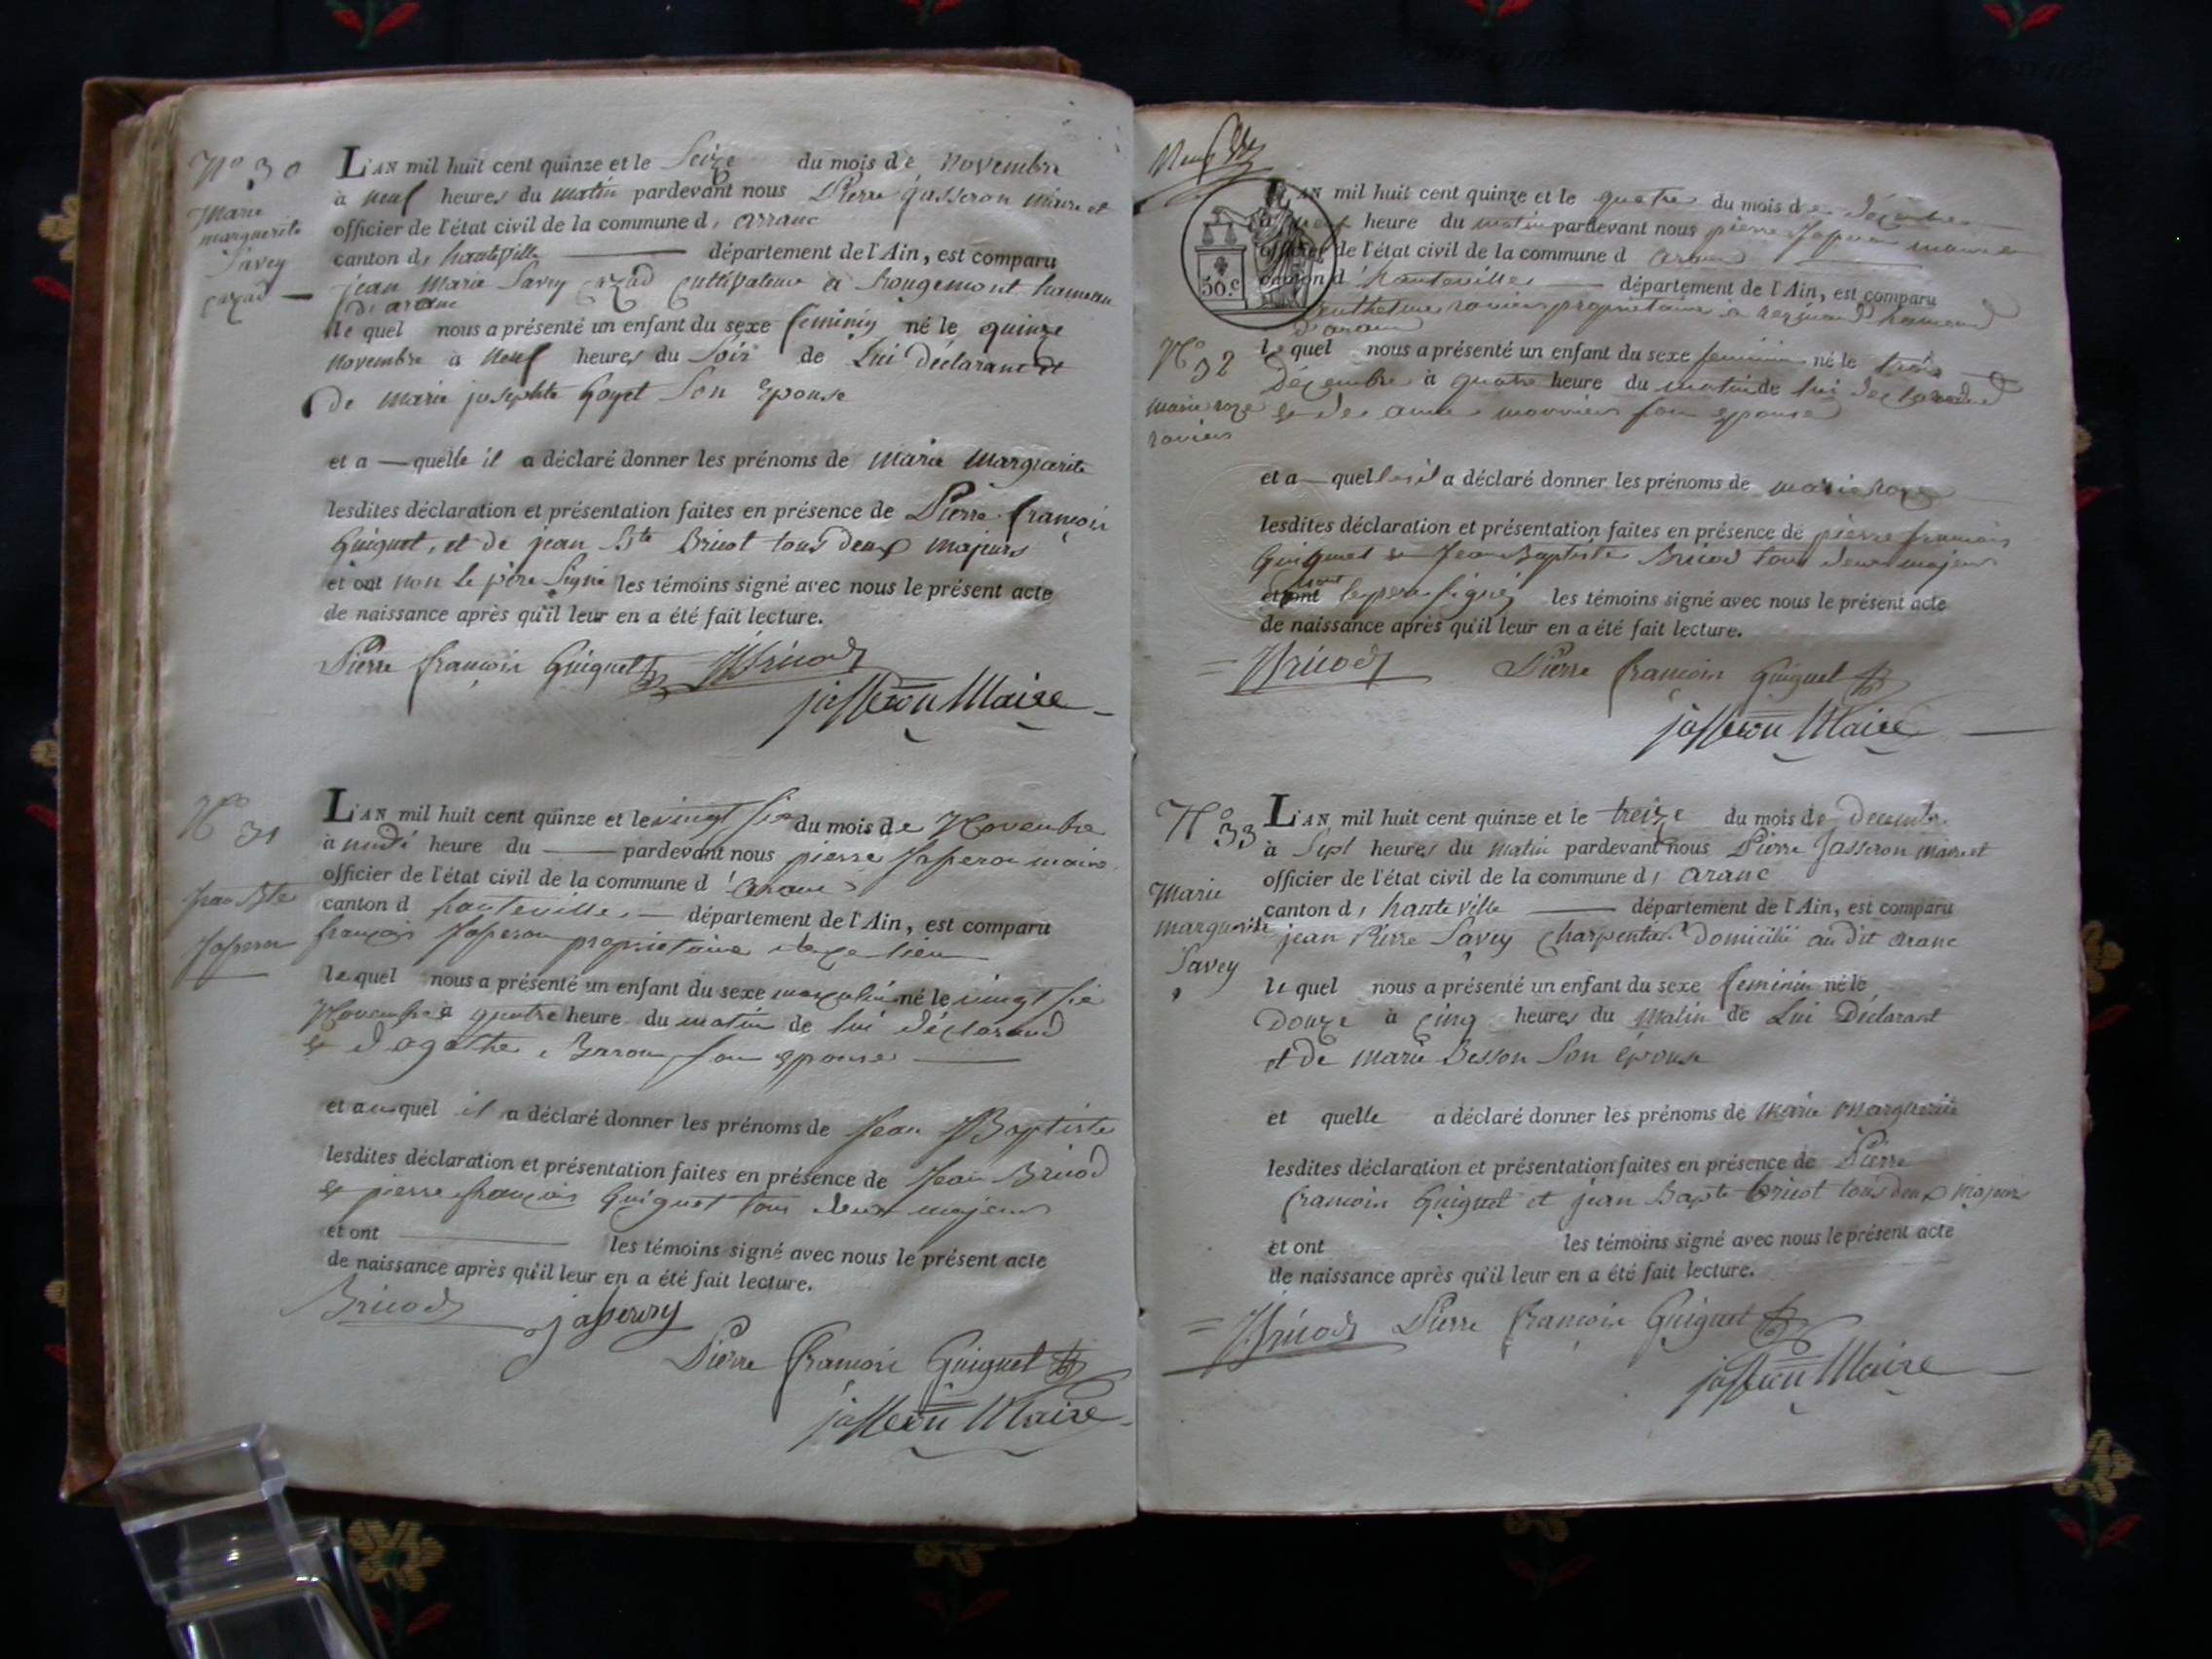 N° 30
Marie
marguerite
Savey
cazad
L'AN mil huit cent quinze et le Seize du mois de Novembre
à neuf heures du matin pardevant nous Pierre Jasseron maire et
officier de l'état civil de la commune d, arranc
canton d, hauteville département de l'Ain, est comparu
jean Marie Savey cazad Cultivateur à Rougemont hameau
d'aranc
le quel nous a présenté un enfant du sexe feminin né le quinze
novembre à neuf heures du Soir de Lui déclarant et
de marie josephte Goyet Son Epouse
et a quelle il a déclaré donner les prénoms de marie Marguerite
lesdites déclaration et présentation faites en présence de Pierre françois
Guiguet, et de jean Bte Bricot tous deux majeurs
et ont non le père Signé les témoins signé avec nous le présent acte
de naissance après qu'il leur en a été fait lecture.
Pierre françois Guiguet JBricod
jasseron Maire
N° 31
jean Bte
Jasseron
L'AN mil huit cent quinze et le vingt six du mois de Novembre
à midi heure du pardevant nous pierre Jasseron maire
officier de l'état civil de la commune d'aranc
canton d hauteville département de l'Ain, est comparu
françois Jasseron propriétaire de ce lieu
le quel nous a présenté un enfant du sexe masculin né le vingt six
Novembre à quatre heure du matin de lui déclarand
et d'agathe Baron son epouse
et auquel il a déclaré donner les prénoms de Jean Baptiste
lesdites déclaration et présentation faites en présence de Jean Bricod
et pierre françois Guiguet tous deux majeurs
et ont les témoins signé avec nous le présent acte
de naissance après qu'il leur en a été fait lecture.
Bricod jasseron
Pierre françois Guiguet
jasseron Maire
30.c
L'AN mil huit cent quinze et le quatre du mois de décembre
à neuf heure du matin pardevant nous pierre Jasseron maire et
officier de l'état civil de la commune d aranc
canton d'hauteville département de l'Ain, est comparu
propriétaire à hameau
d'aranc
N° 32
marie roze
le quel nous a présenté un enfant du sexe feminin né le trois
Décembre à quatre heure du matin de lui declarand
et de anne son epouse
et a quelle il a déclaré donner les prénoms de marie roze
lesdites déclaration et présentation faites en présence de pierre françois
Guiguet et Jean Baptiste Bricod tous deux majeurs
et ont non le pere signé, les témoins signé avec nous le présent acte
de naissance après qu'il leur en a été fait lecture.
JBricod Pierre françois Guiguet
jasseron Maire
N° 33
Marie
marguerite
Savey
L'AN mil huit cent quinze et le treize du mois de decembre
à Sept heures du matin pardevant nous Pierre Jasseron maire et
officier de l'état civil de la commune d, aranc
canton d, hauteville département de l'Ain, est comparu
jean Pierre Savey Charpentier domicilié au dit aranc
le quel nous a présenté un enfant du sexe feminin né le
Douze à cinq heures du matin de Lui Déclarant
et de marie Besson Son épouse
et quelle a déclaré donner les prénoms de Marie Marguerite
lesdites déclaration et présentation faites en présence de Pierre
françois Guiguet et jean Bapte Bricot tous deux majeurs
et ont les témoins signé avec nous le présent acte
de naissance après qu'il leur en a été fait lecture.
JBricod Pierre françois Guiguet
jasseron Maire